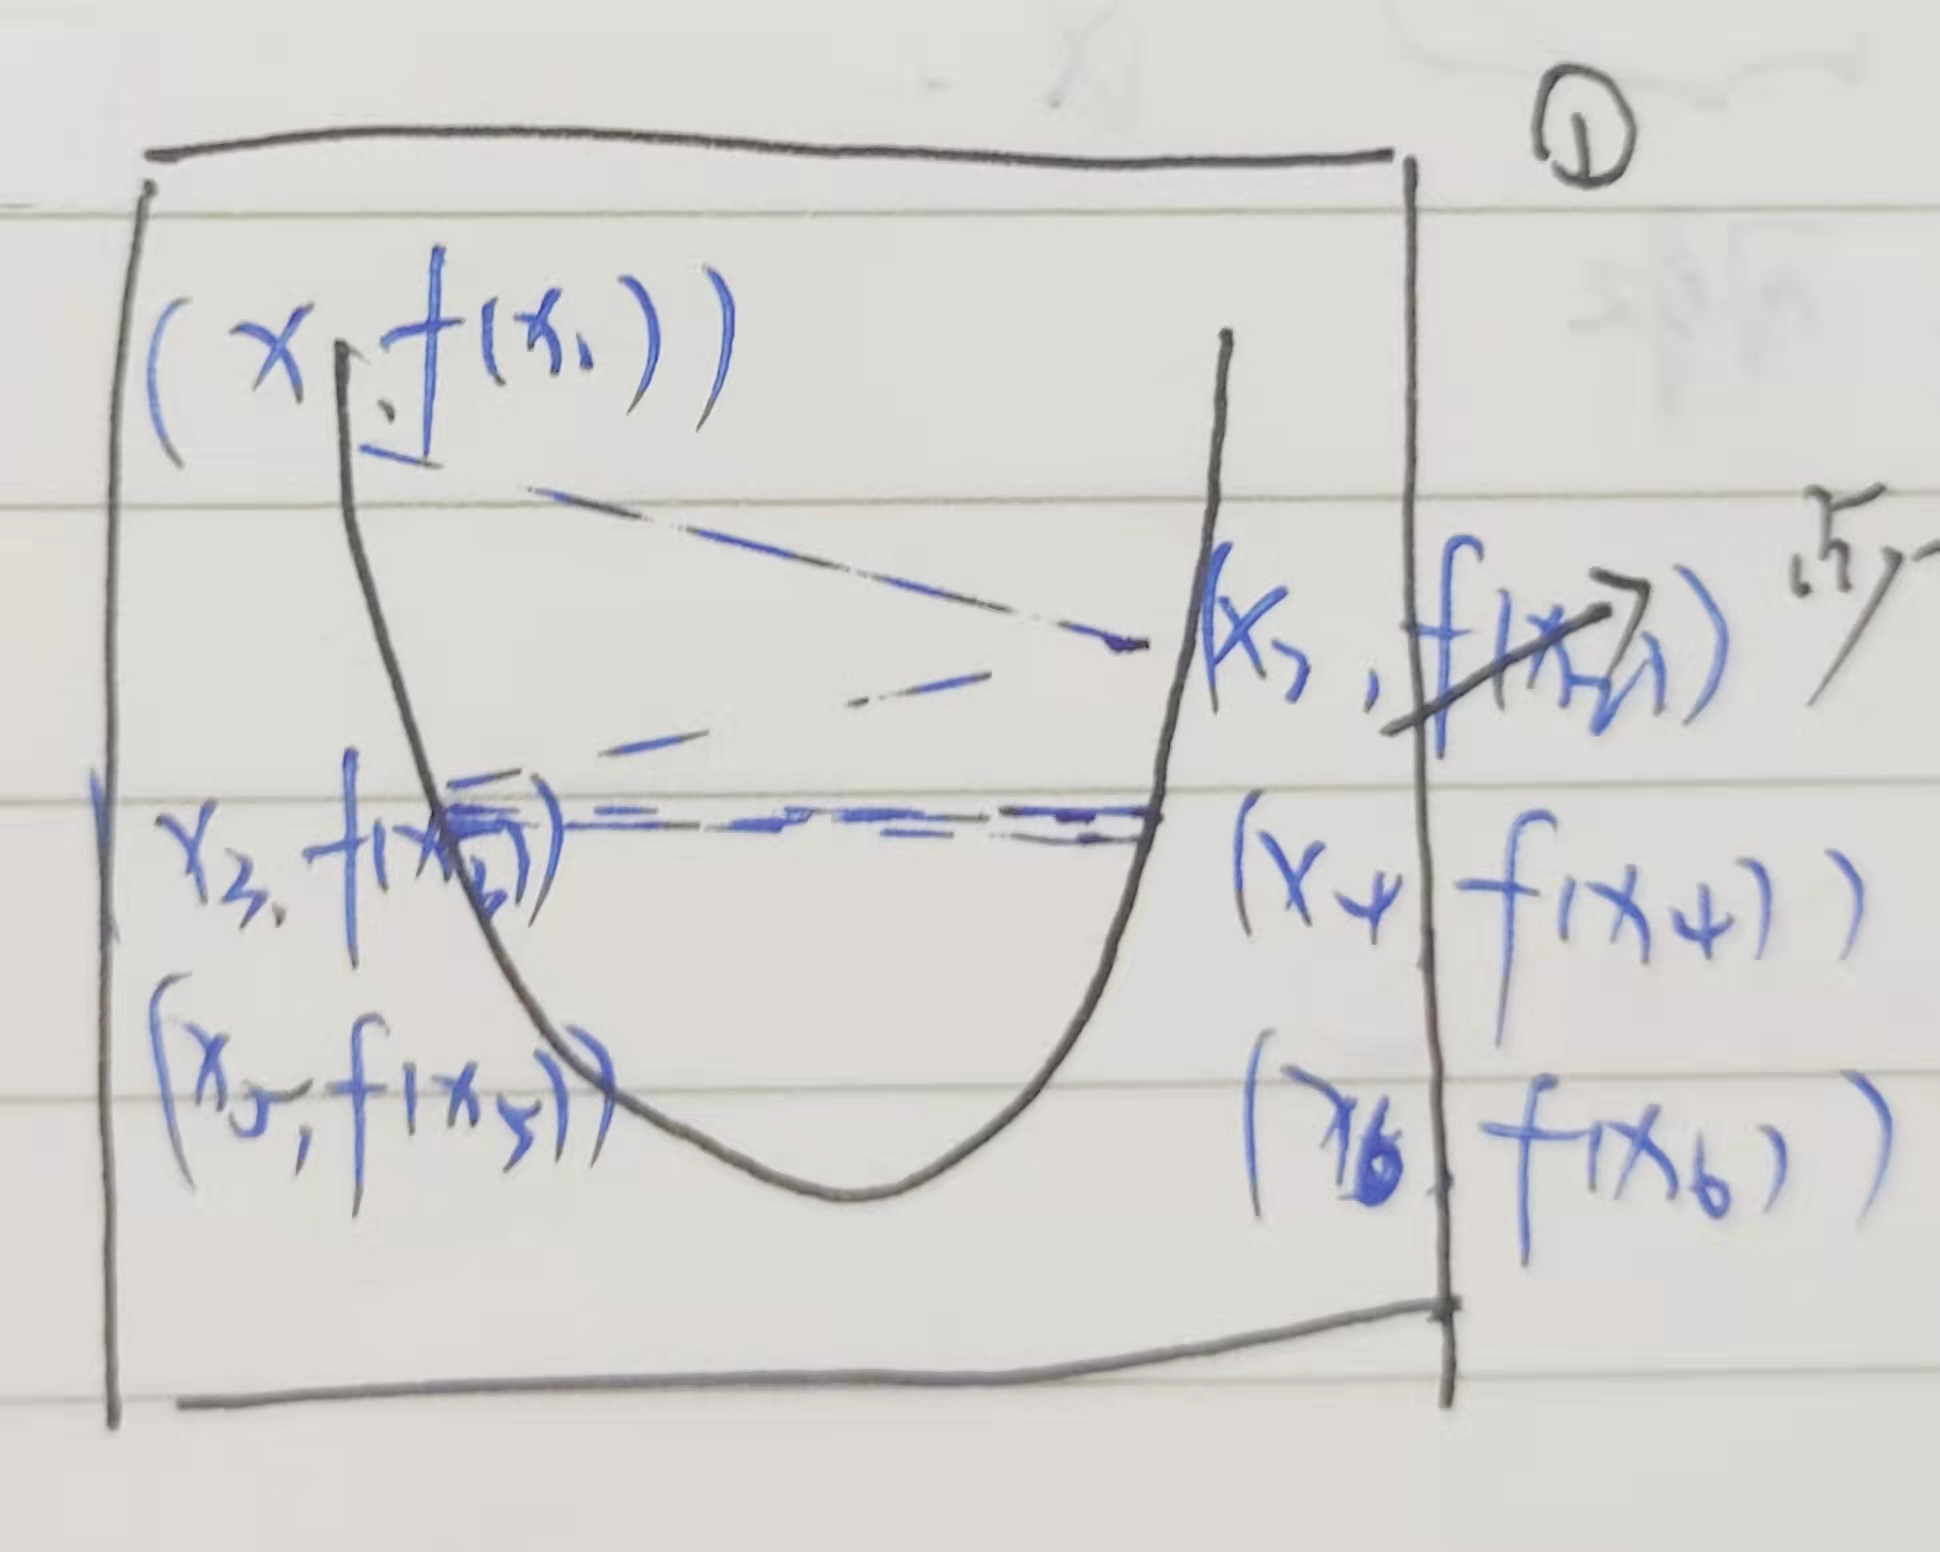 ①
(x, f(x₁))
(x₂, f(x₂))
x₃, f(x₃)
(x₄ f(x₄))
(x₅, f(x₅))
(x₆ f(x₆))